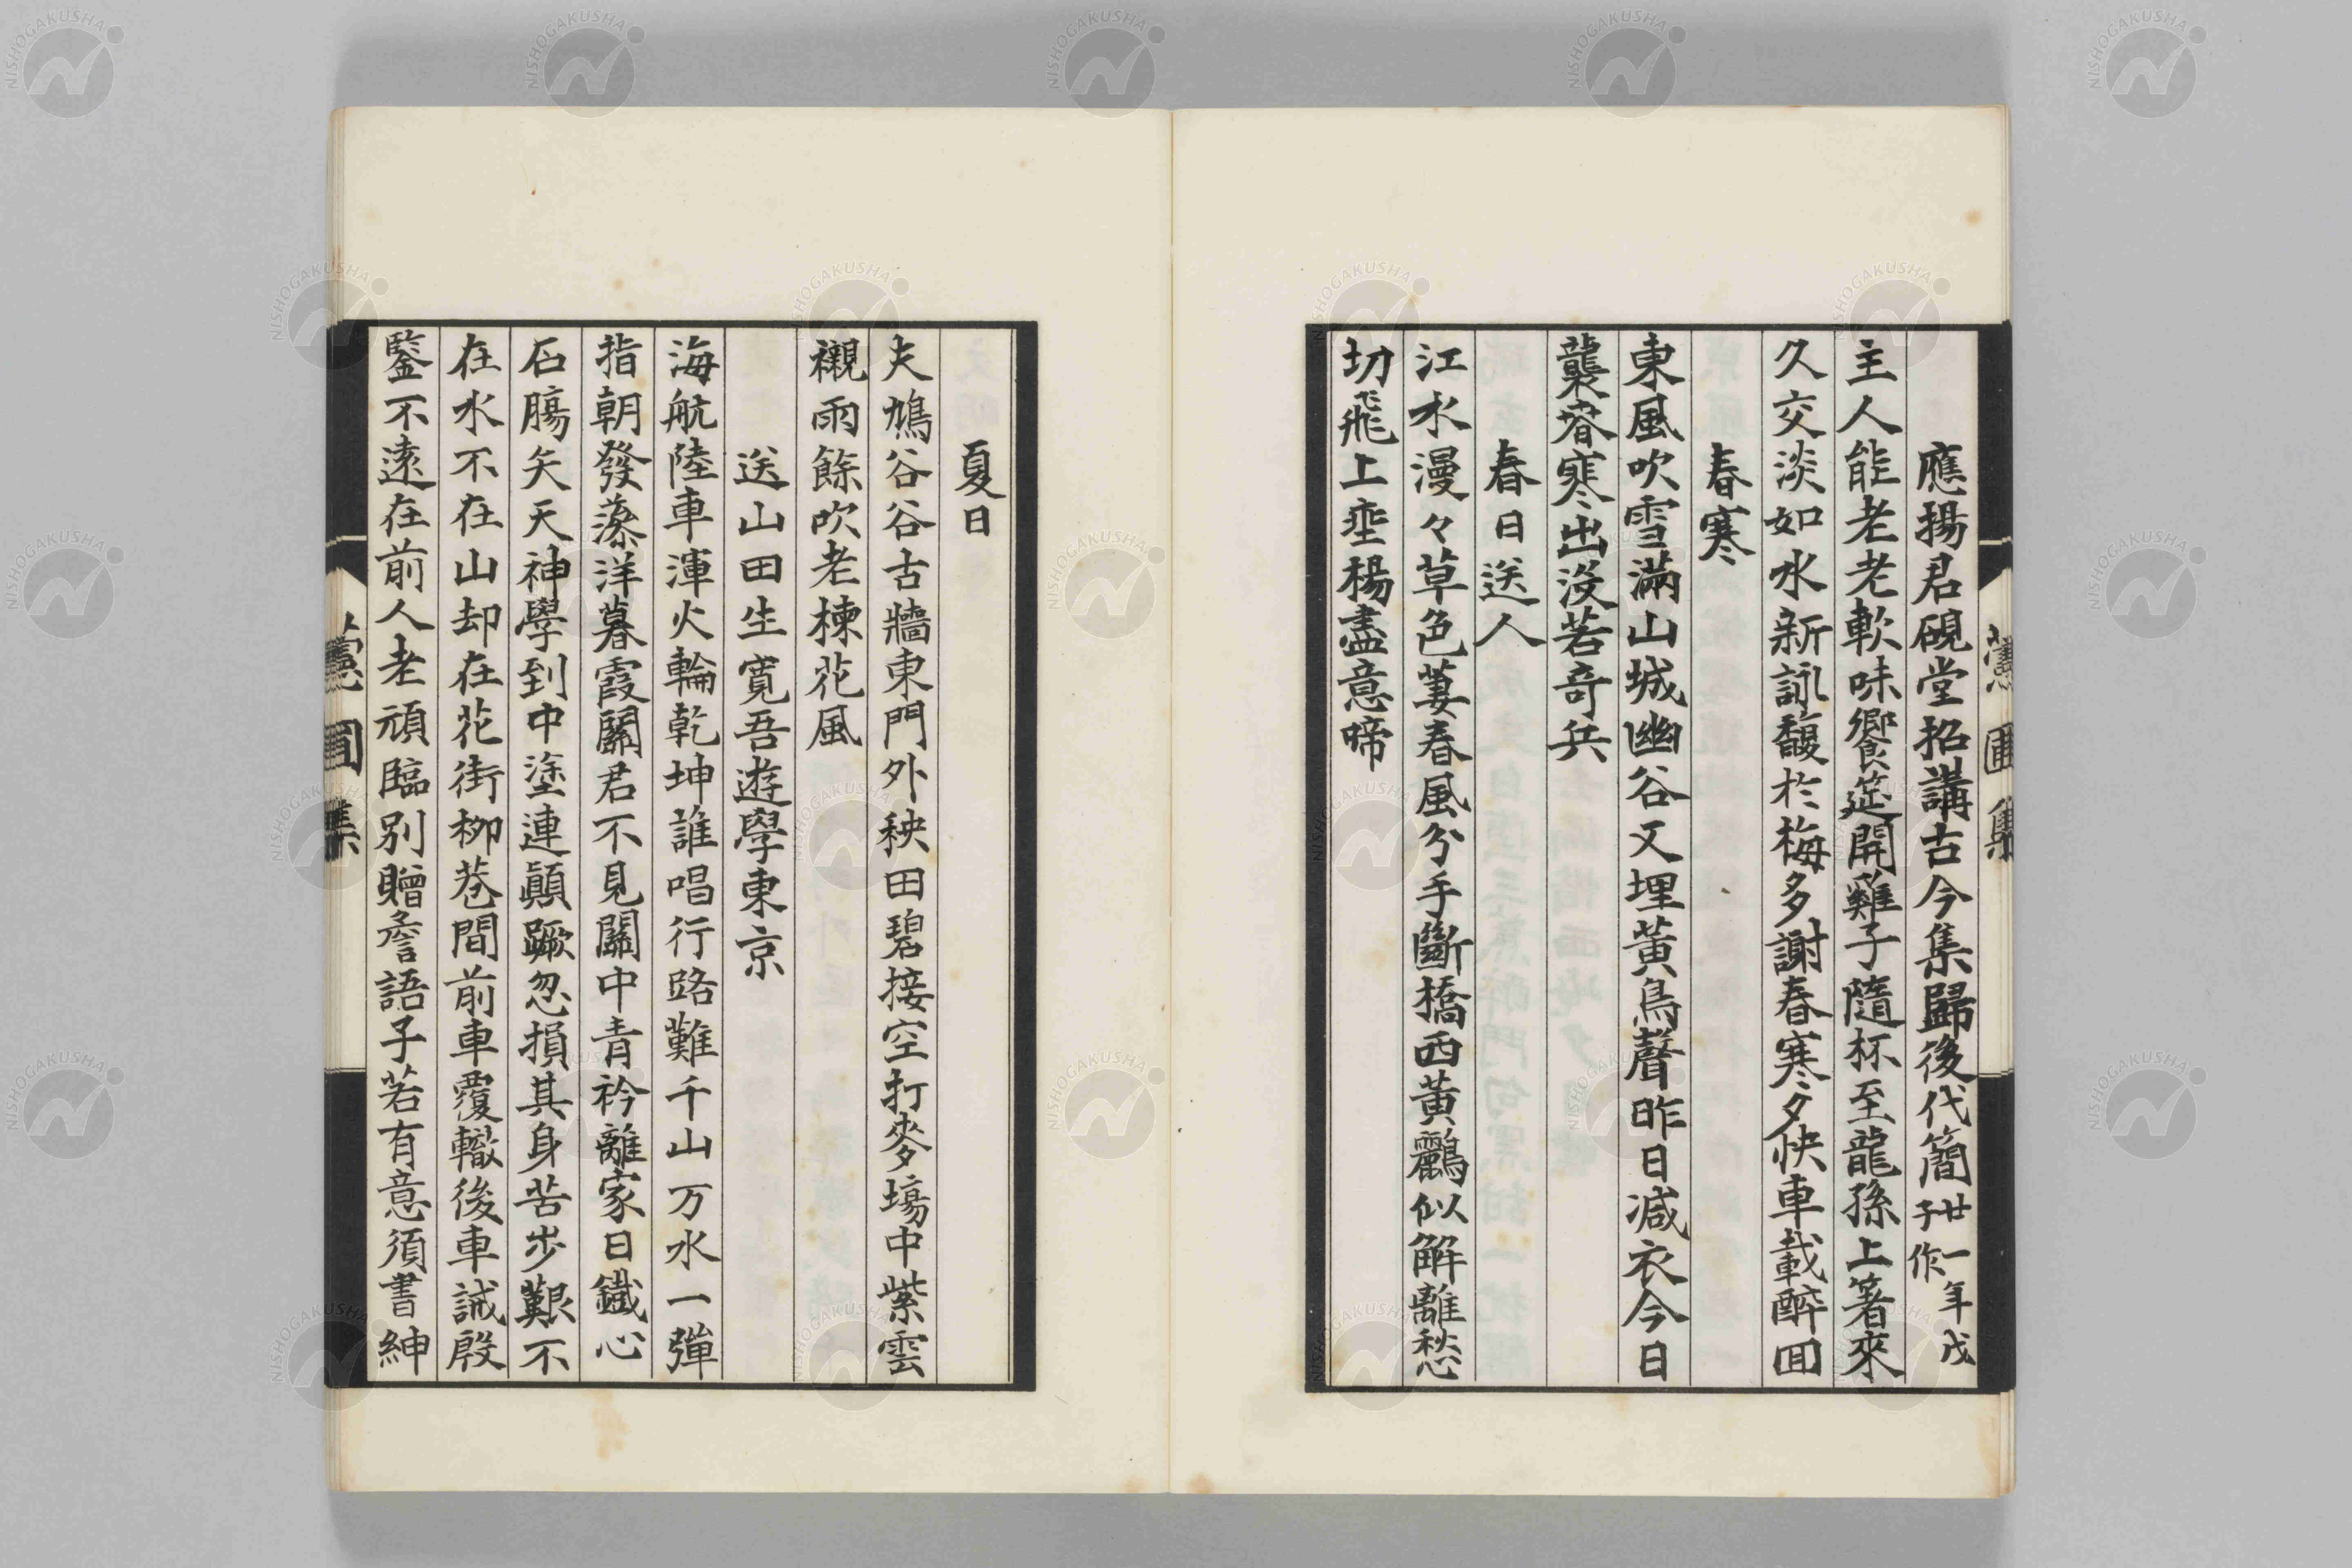 應揚君硯堂招講古今集歸後代簡廿一年戊子作
主人能老老軟味饗筵開雞子隨杯至龍孫上箸來
久交淡如水新詠馥於梅多謝春寒夕快車載醉囬
春寒
東風吹雪滿山城幽谷又埋黃鳥聲昨日減衣今日
襲春寒出沒若奇兵
春日送人
江水漫々草色萋春風分手斷橋西黃鸝似解離愁
切飛上垂楊盡意啼
薏圃集
夏日
夫鳩谷谷古牆東門外秧田碧接空打麥場中紫雲
襯雨餘吹老楝花風
送山田生寬吾遊學東京
海航陸車渾火輪乾坤誰唱行路難千山万水一彈
指朝發藻洋暮霞關君不見關中青衿離家日鐵心
石腸矢天神學到中塗連顛蹶忽損其身苦步艱不
在水不在山却在花街柳巷間前車覆轍後車誡殷
鑒不遠在前人老頑臨別贈詹語子若有意須書紳
薏圃集
NISHOGAKUSHA